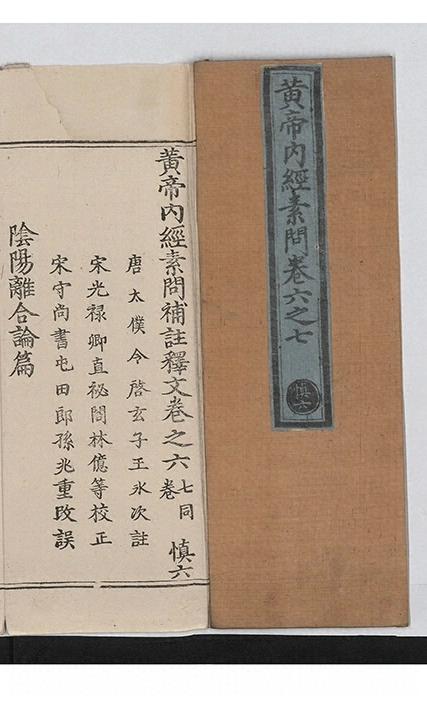 黄帝内經素問卷六之七
慎六
黃帝内經素問補註釋文卷之六 七同卷 慎六
唐太僕令啓玄子王氷次註
宋光禄卿直祕閣林億等校正
宋守尚書屯田郎孫兆重改誤
陰陽離合論篇